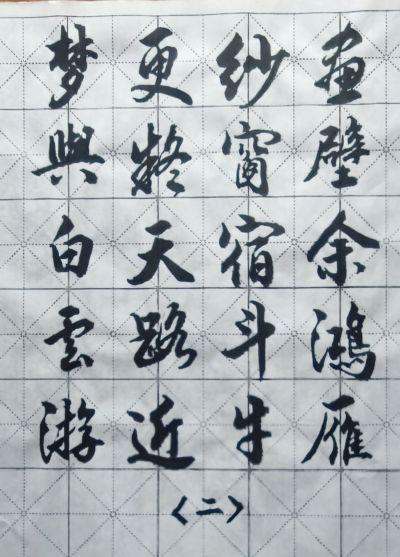 画壁余鴻雁
纱窗宿斗牛
更疑天路近
梦與白雲游
〈二〉